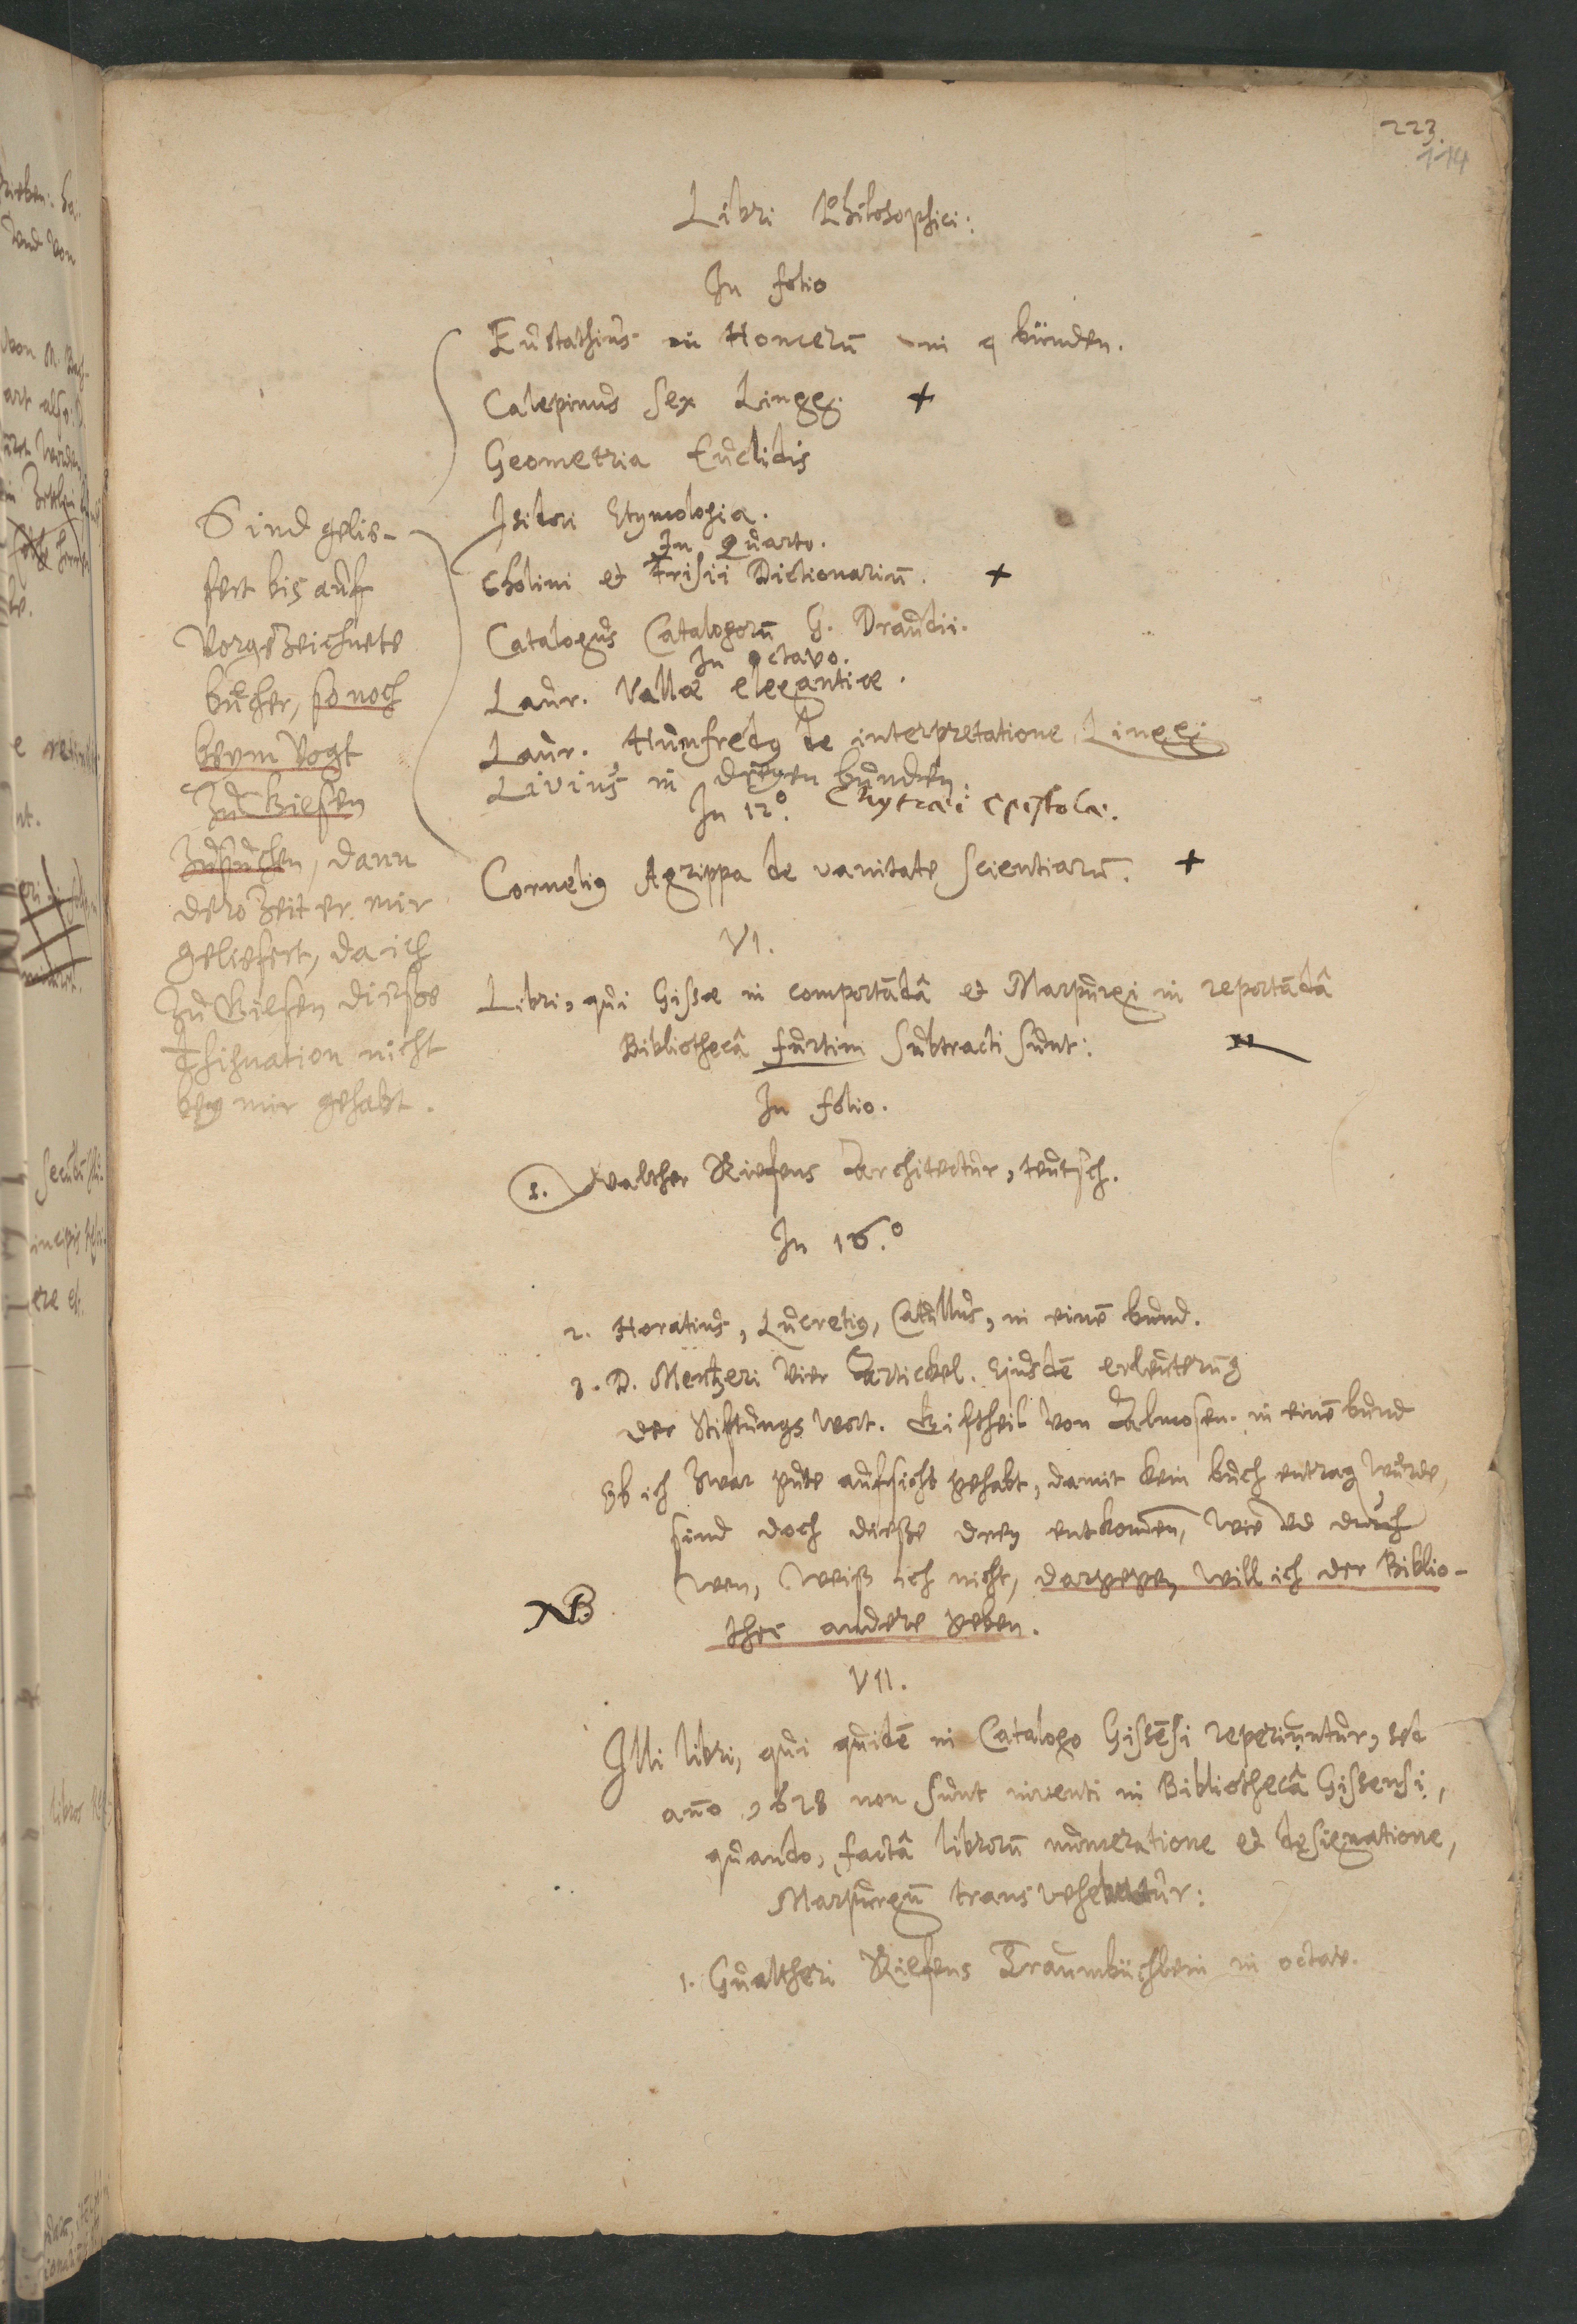 223.
114
Libri Philosophici:
In folio
Eustathius in Homerū in 4 bünden.
Calepinus sex Lingg. +
Geometria Euclidis
Isidori Etymologia.
In Quarto.
Cholini et Frisii Dictionariū. +
Catalogus Catalogorū G. Draudii.
In octavo.
Laur. Vallæ elegantiæ.
Laur. Humfredus de interpretatione Lingg.
Livius in dreyen bunden.
In 12°. Chytræi Epistolæ.
Cornelius Agrippa de vanitate Scientiarū. +
Sind gelie-
fert bis auf
Vorgezeichnete
bücher, so noch
beym Vogt
Zu Giesen
Zusuchen, dann
dero Zeit er mir
geliefert, da ich
Zu Giesen dieße
Consignation nicht
bey mir gehabt.
VI.
Libri, qui Gissæ in comportādâ et Marpurgi in reportādâ
Bibliothecâ furtim subtracti sunt:
In folio.
1. Walther Riefens Architectur, teutsch.
In 16.°
2. Horatius, Lucretius, Catullus, in einē bund.
3. D. Mentzeri Vier Artickel. Ejusdē erleuterung
der Stiftungs wort. Giftheil von Almosen. in einē bund
Ob ich Zwar gute aufsicht gehabt, damit kein buch entrag würde,
sind doch dieße drey entkomen, wie vd durch
wen, weiß ich nicht, dargegen will ich der Biblio-
NB thec andere geben.
VII.
Illi libri, qui quidē in Catalogo Gissēsi reperiuntur, sed
año 1628 non sunt inventi in Bibliothecâ Gissensi,
quando, factâ librorū numeratione et designatione,
Marpurgū transvehebatur:
1. Gualtheri Riefens Traumbüchlein in octav.